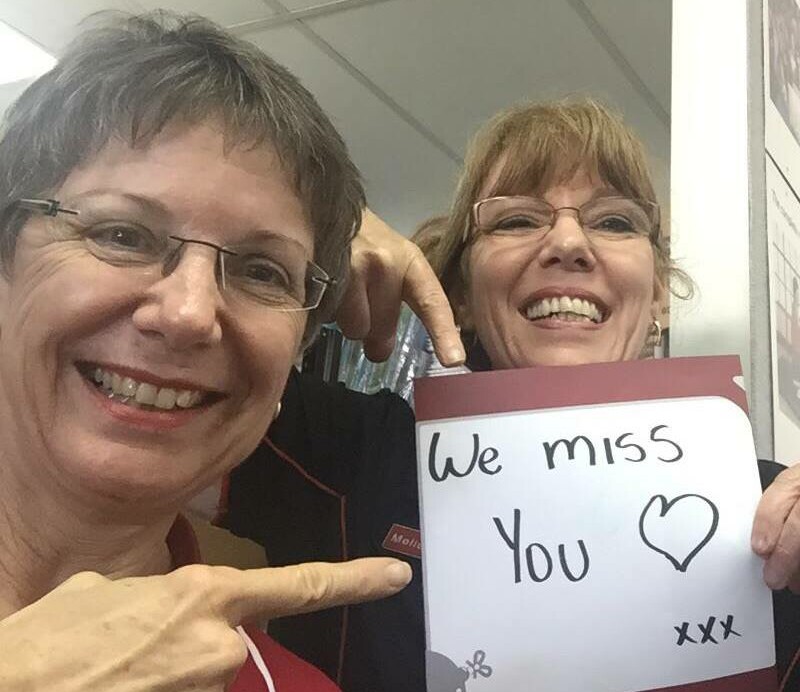 We miss
You ♡
xxx